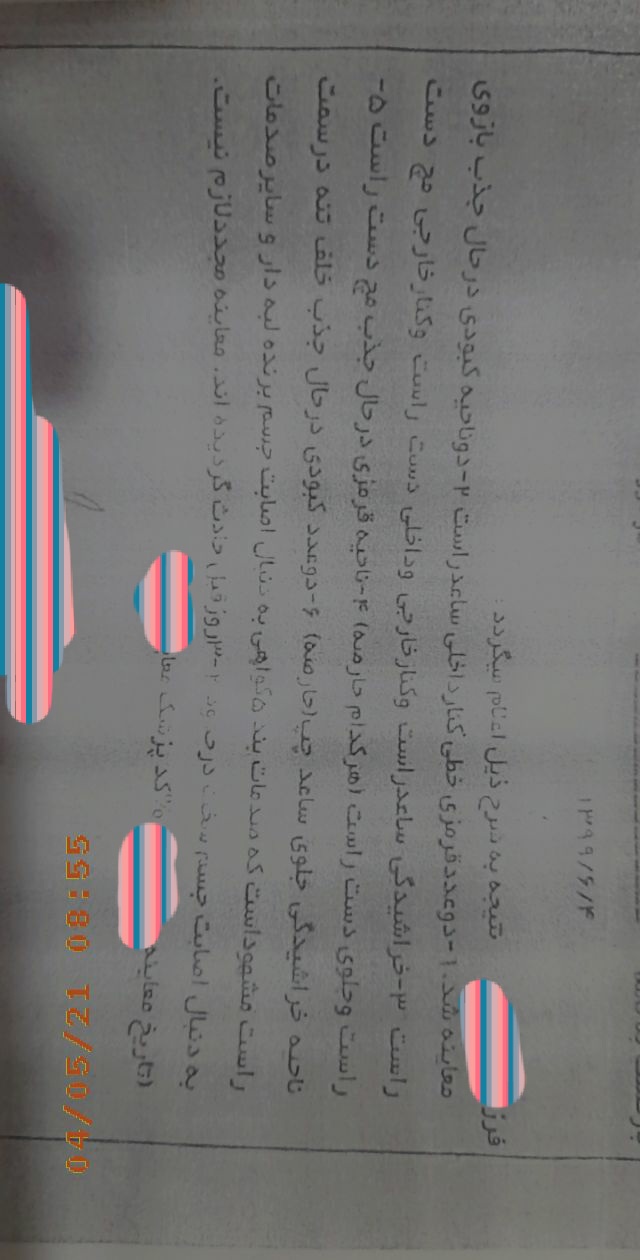 ۱۳۹۹/۶/۴
فرز نتیجه به شرح ذیل اعلام میگردد :
معاینه شد. ۱-دوعددقرمزی خطی کنار داخلی ساعدراست ۲-دوناحیه کبودی درحال جذب بازوی
راست ۳-خراشیدگی ساعدراست وکنارخارجی وداخلی دست راست وکنارخارجی مچ دست
راست وجلوی دست راست (هرکدام حارصه) ۴-ناحیه قرمزی درحال جذب مچ دست راست ۵-
ناحیه خراشیدگی جلوی ساعد چپ(حارصه) ۶-دوعدد کبودی درحال جذب خلف تنه درسمت
راست مشهوداست که صدمات بند ۵گواهی به دنبال اصابت جسم برنده لبه دار و سایرصدمات
به دنبال اصابت جسم سخت درحدود ۲-۳روزقبل حادث گردیده اند. معاینه مجددلازم نیست.
(تاریخ معاینه کد پزشک معا
04/05/21 08:55